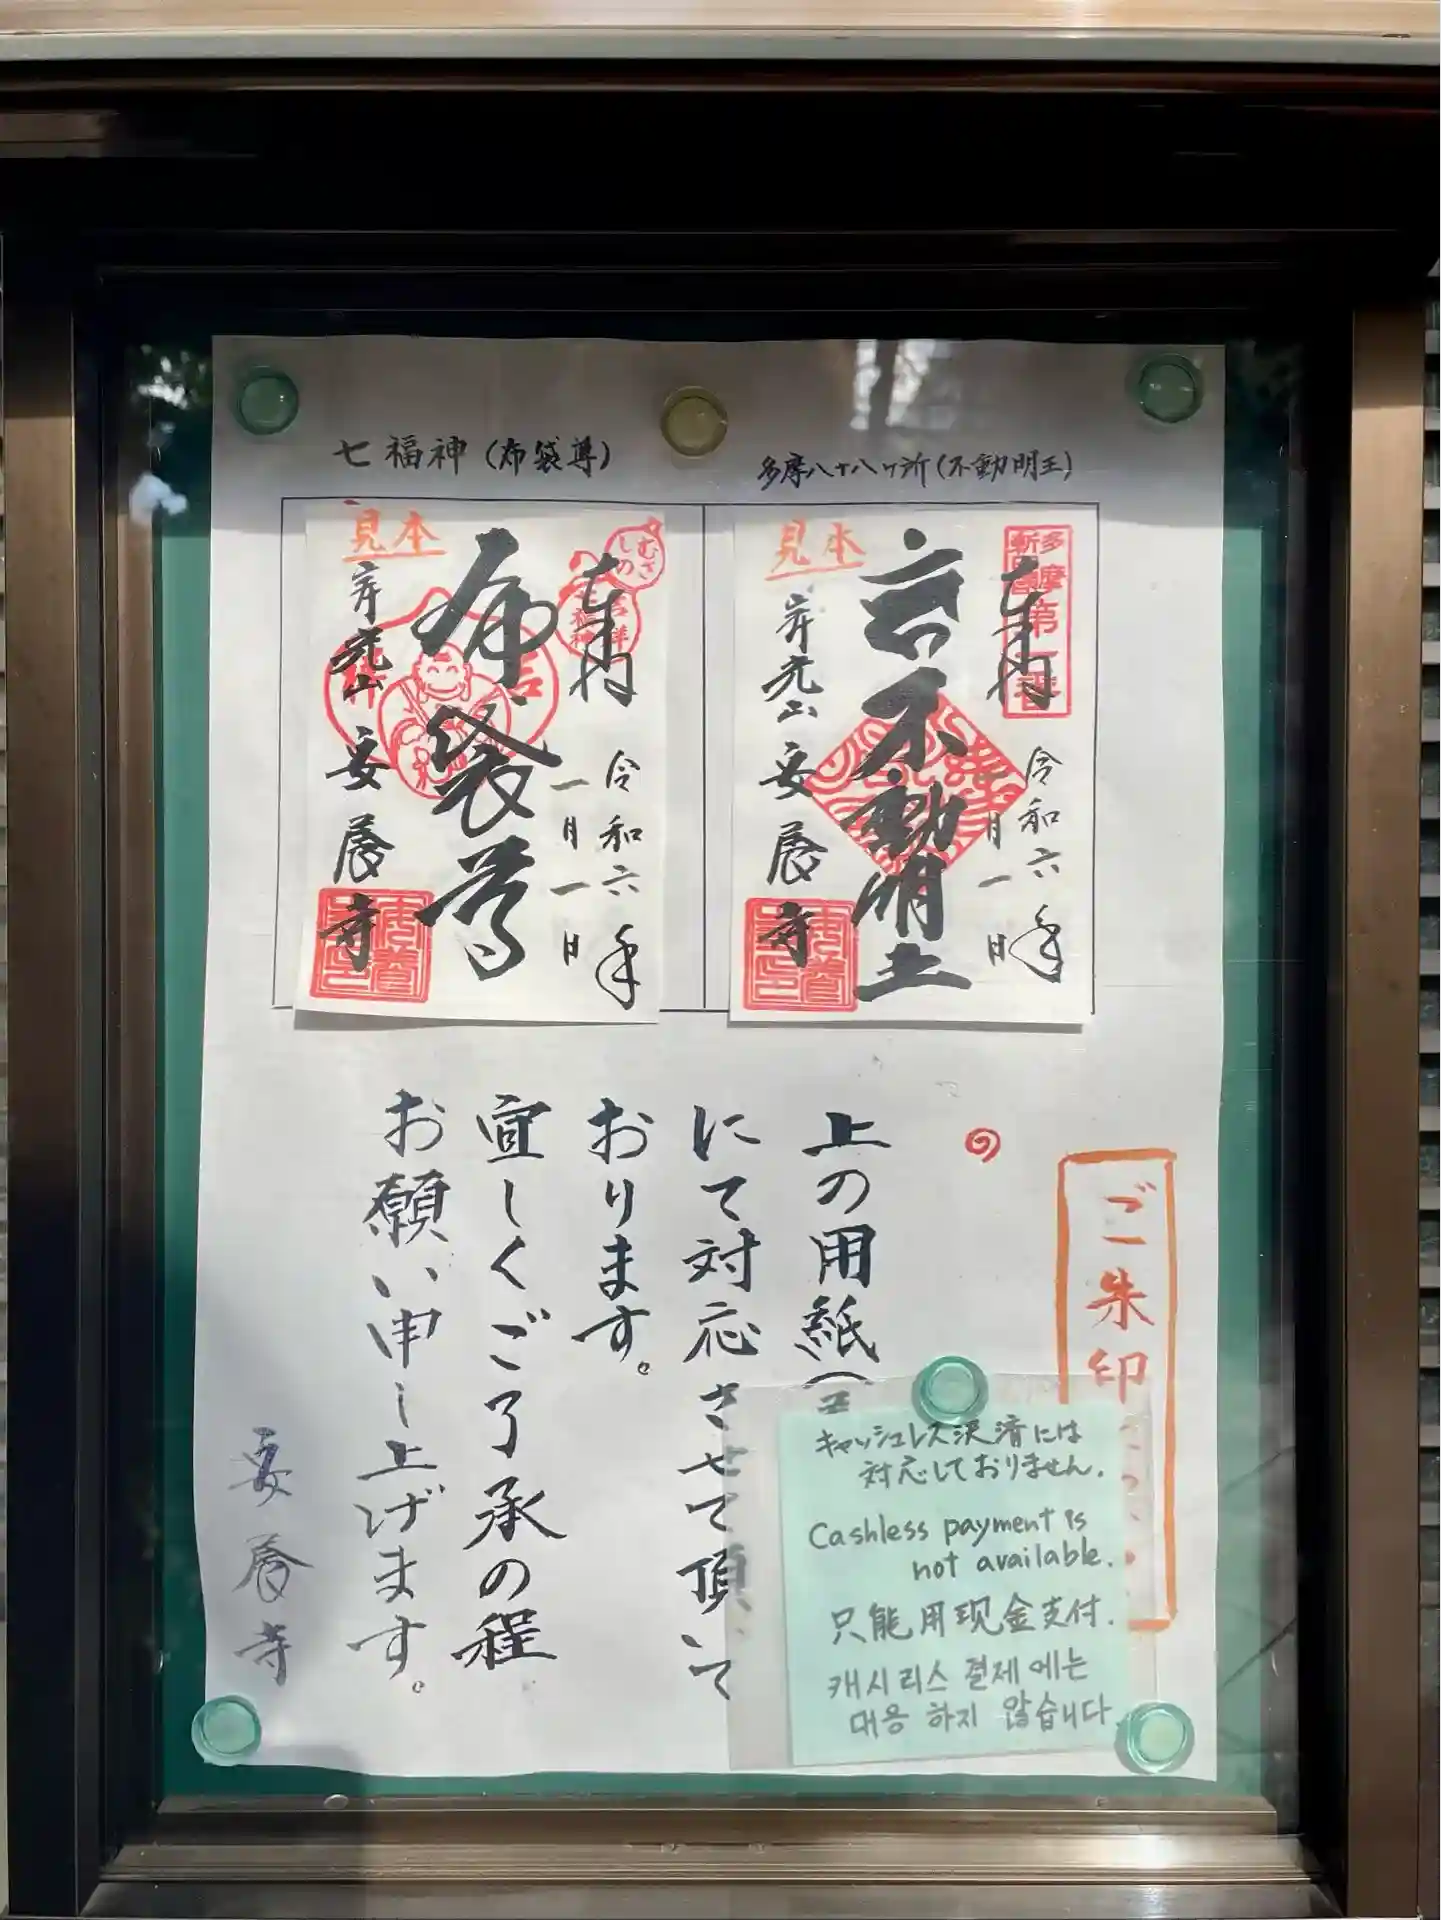 七福神(布袋尊)
多摩八十八ヶ所(不動明王)
見本
奉拝
むさしの
吉祥
七福神
令和六年
一月一日
布袋尊
岸光山
安養寺
見本
多摩
新四国
第一番
奉拝
令和六年
一月一日
不動明王
岸光山
安養寺
ご朱印
上の用紙(
にて対応させて頂いて
おります。
宜しくご了承の程
お願い申し上げます。
安養寺
キャッシュレス決済には
対応しておりません.
Cashless payment is
not available.
只能用现金支付.
캐시리스 결제에는
대응 하지 않습니다.